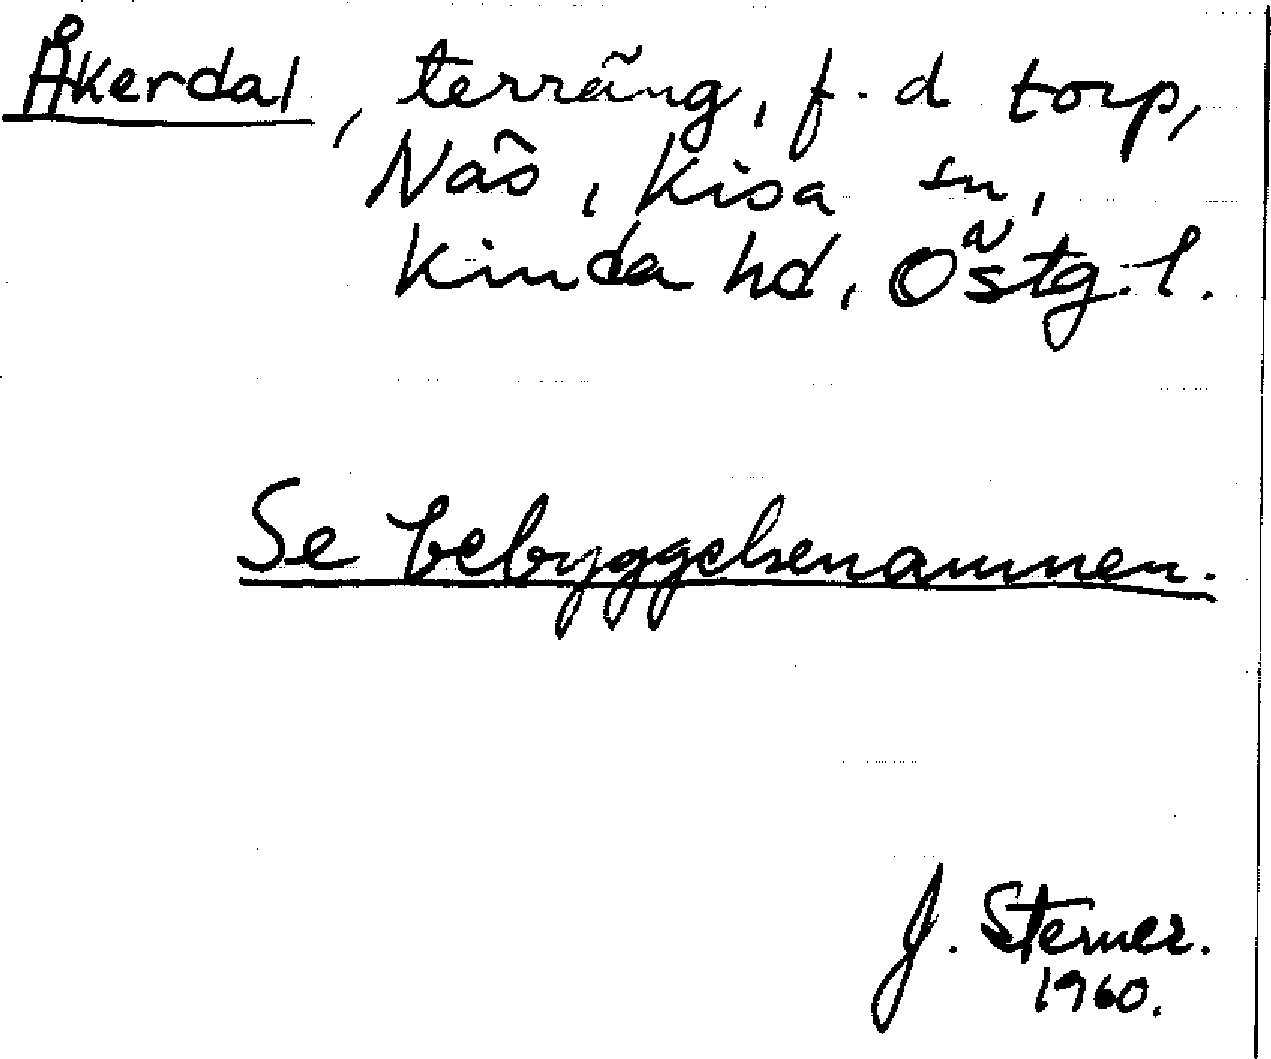 Åkerdal, terräng, f.d torp,
Näs, Kisa sn,
Kinda hd, Östg. l.
Se bebyggelsenamnen.
J. Sterner.
1960.